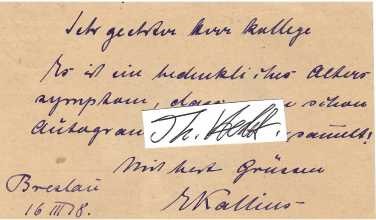 Sehr geehrter Herr Kollege
Es ist ein bedenkliches Alters
symptom, dass schon
Autogram sammelt!
Mit best Grüssen
Breslau
EKallius
16 III 18.